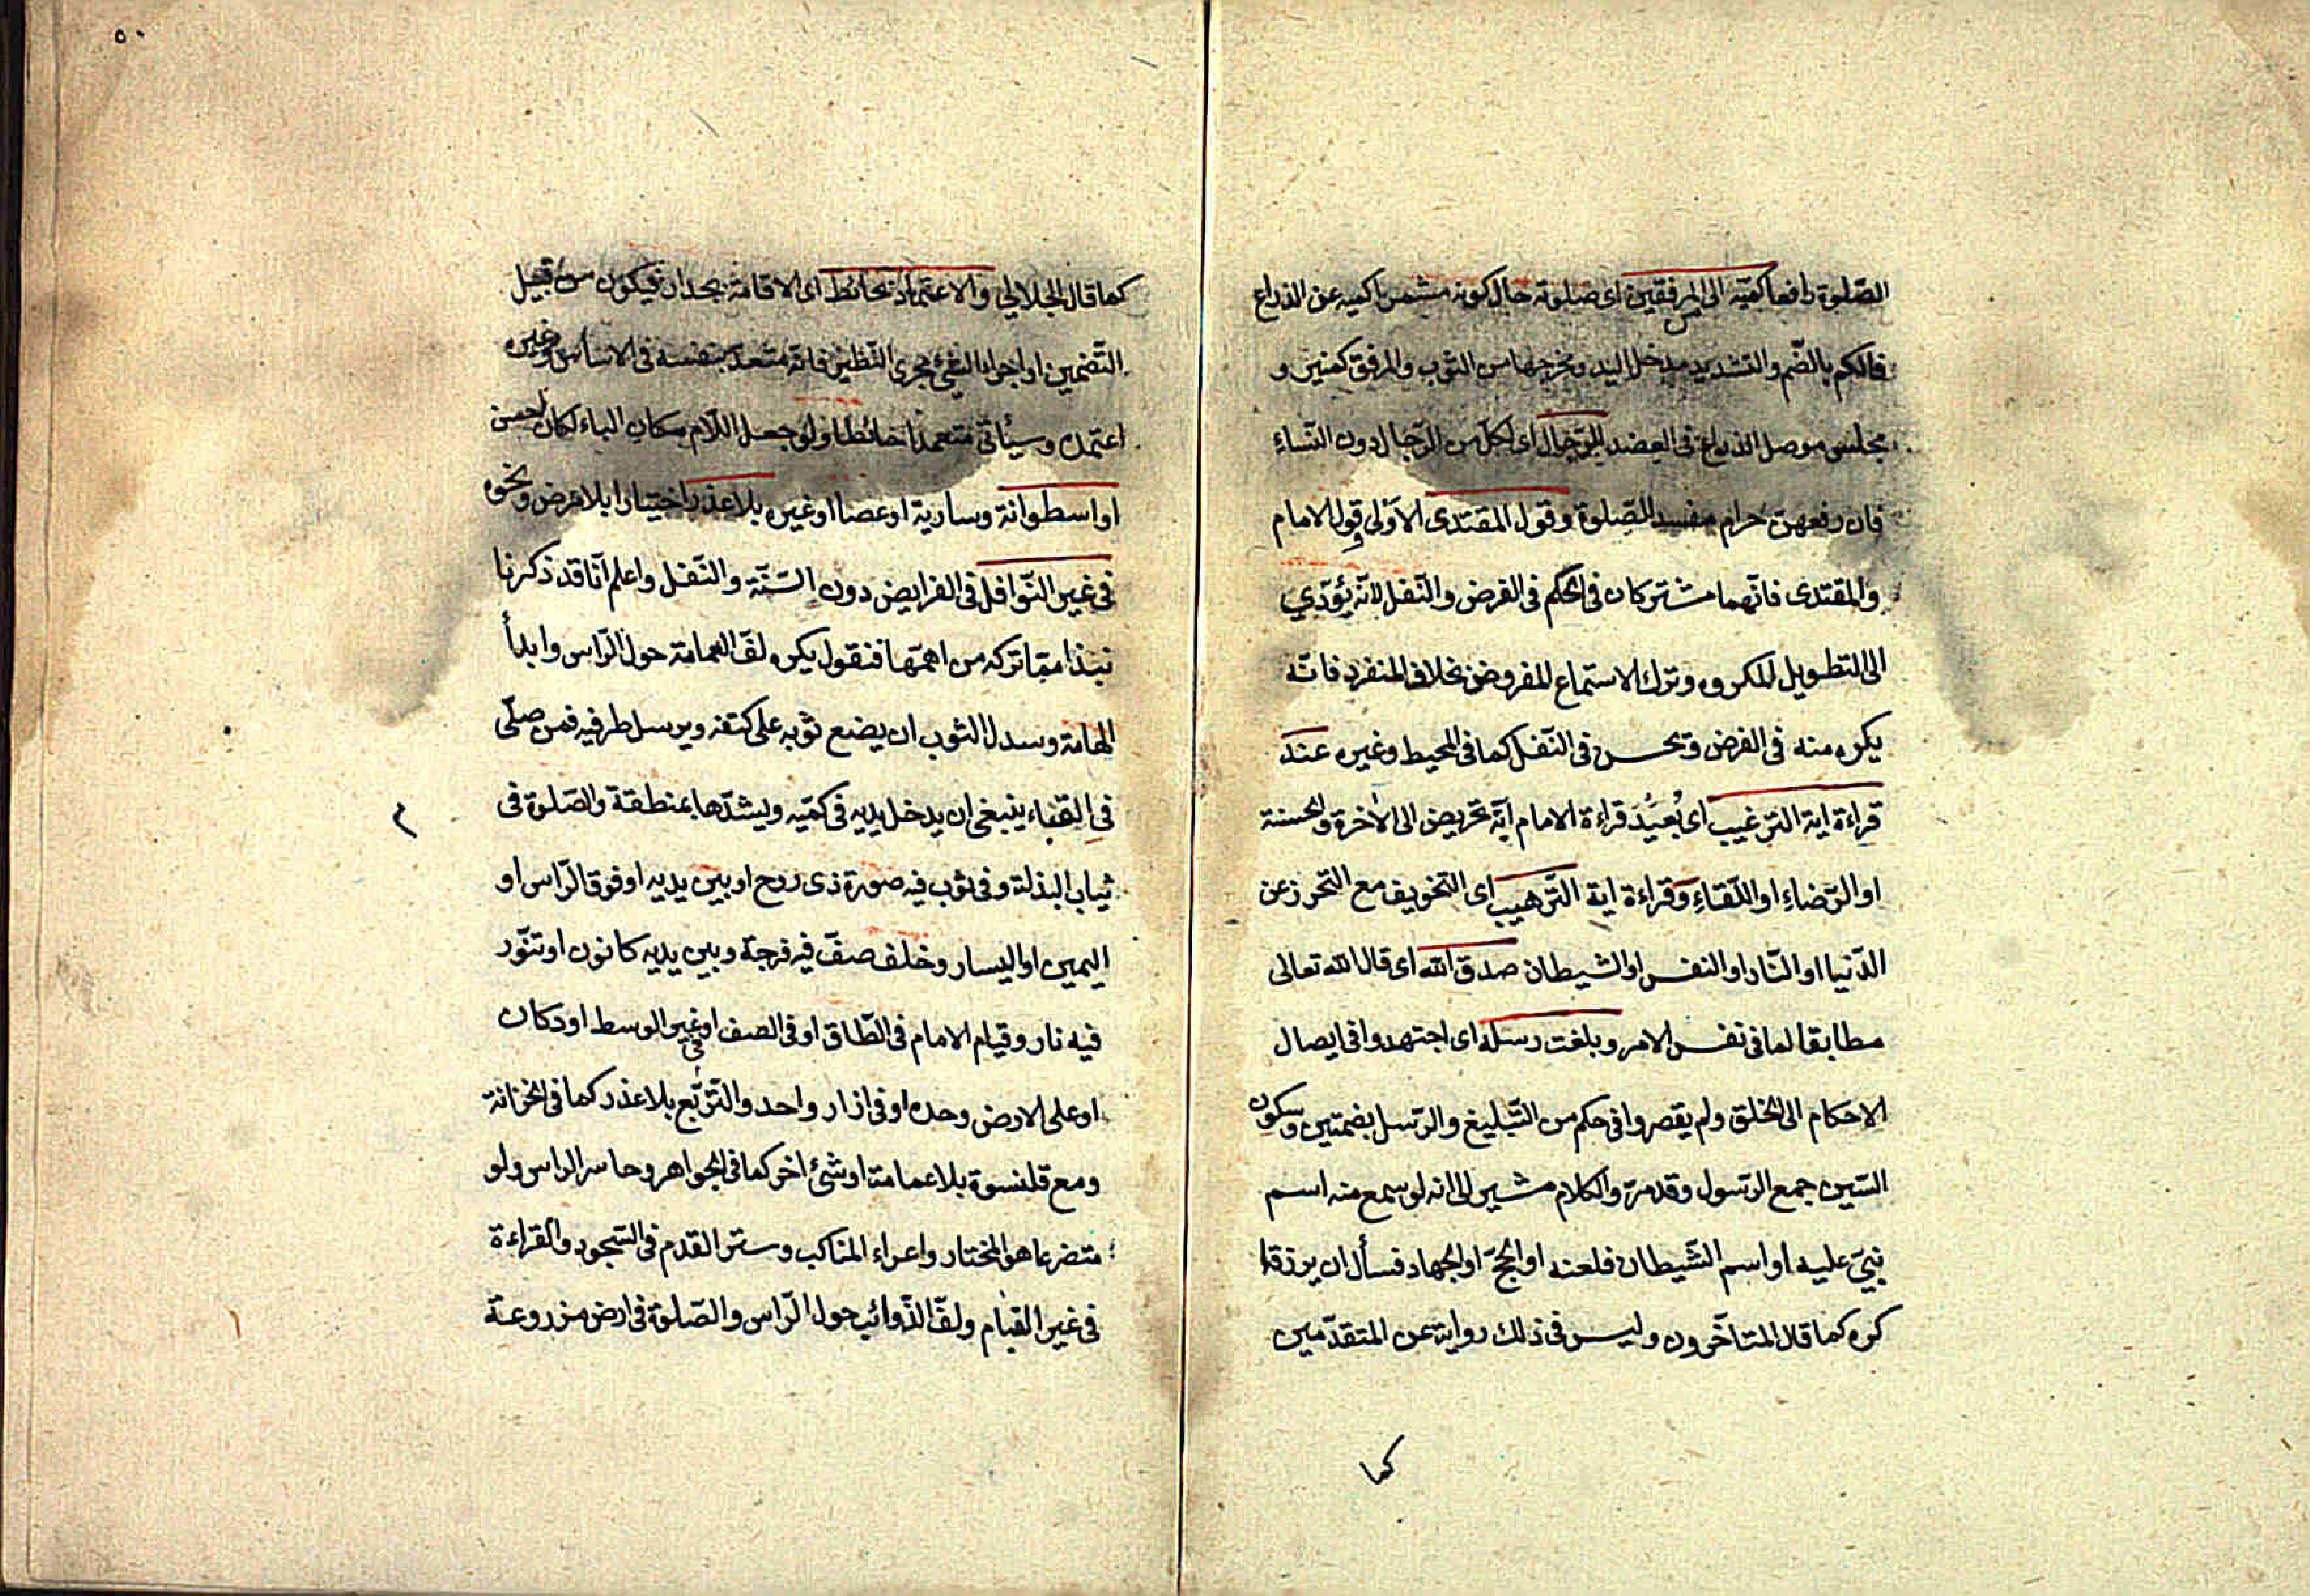 الصّلوة رافعا كمّيه الى المرفقين اى صلوته حال كونه مشمرا كميه عن الذراع
فالكم بالضّم والتشديد مدخل اليد ومخرجها من الثوب والمرفق كمنبر و
مجلس موصل الذراع فى العضد للرّجال اى لكل من الرّجال دون النّساء
فان رفعهن حرام مفسد للصّلوة وقول المقتدى الاولى قول الامام
والمقتدى فانّهما مشتركان فى الحكم فى الفرض والنّفل لانّه يؤدّي
الى التطويل المكروه وترك الاستماع المفروض بخلاف المنفرد فانّه
يكره منه فى الفرض ويحسن فى النّفل كما فى المحيط وغيره عند
قراءة اية الترغيب اى بُعَيْدَ قراءة الامام آية تحريض الى الاخرة والحسنة
او الرّضاء او اللّقاء وقراءة اية التّرهيب اى التخويف مع التحرز عن
الدّنيا او النّار او النفس او الشيطان صدق الله اى قال الله تعالى
مطابقا لما فى نفس الامر وبلغت رسله اى اجتهدوا فى ايصال
الاحكام الى الخلق ولم يقصروا فى حكم من التّبليغ والرّسل بضمتين وسكون
السّين جمع الرّسول وقد مرّ والكلام مشير الى انه لو سمع منه اسم
نبىّ عليه او اسم الشّيطان فلعنه او الحجّ او الجهاد فسأل ان يرزقا
كره كما قال المتأخّرون وليس فى ذلك رواية عن المتقدّمين
كما
٥٠
كما قال الجلالي والاعتماد بحائط اى الاقامة بجدار فيكون من قبيل
التّضمين او اجراء الشئ مجرى النّظير فانّه متعد بنفسه فى الاساس وغيره
اعتمده وسيأتى متعمدا حائطا ولو جعل اللّام مكان الباء لكان احسن
او اسطوانة وسارية او عصا او غيره بلا عذر اختيارا بلا مرض ونحوه
فى غير النّوافل فى الفرايض دون السّنّة والنّفل واعلم انّا قد ذكرنا
نبذا ممّا تركه من اهمّها فنقول يكره لفّ العمامة حول الرّاس وابداء
الهامة وسدل الثوب ان يضع ثوبه على كتفه ويرسل طرفيه فمن صلّى
فى القباء ينبغى ان يدخل يديه فى كمّيه ويشدّها بمنطقة والصّلوة فى
ثياب البذلة وفى ثوب فيه صورة ذى روح او بين يديه او فوق الرّاس او
اليمين او اليسار وخلف صفّ فيه فرجة وبين يديه كانون او تنّور
فيه نار وقيام الامام فى الطّاق او فى الصف او فى غير الوسط او دكان
او على الارض وحده او فى ازار واحد والتّربّع بلا عذر كما فى الخزانة
ومع قلنسوة بلا عمامة او شئ اخر كما فى الجواهر وحاسر الراس ولو
متضرعا هو المختار واعراء المناكب وستر القدم فى السّجود والقراءة
فى غير القيام ولفّ الذّوائب حول الرّاس والصّلوة فى ارض مزروعة